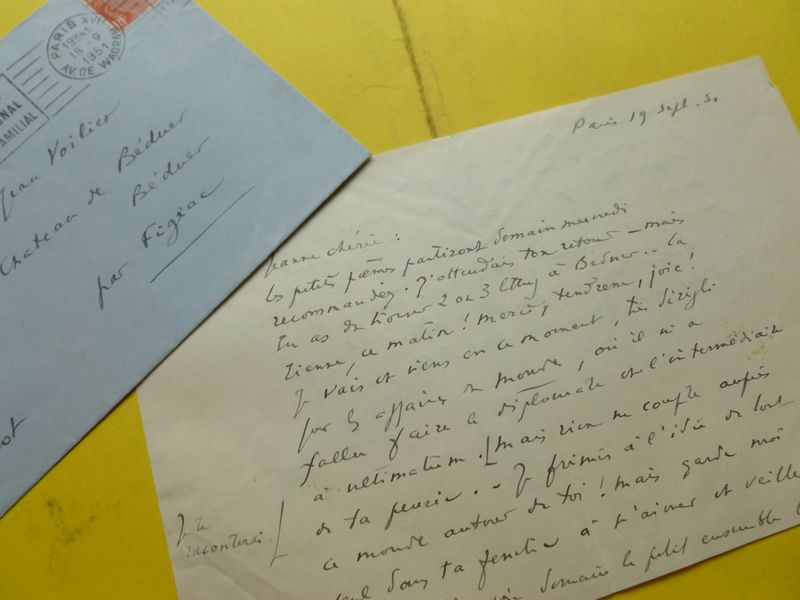 PARIS XVII
19H45
18-9
1951
AV. DE WAGRAM
NAL
FAMILIAL
Jean Voilier
Chateau de Béduer
Béduer
par Figeac
Paris 19 Sept. 51
Jeanne chérie :
les petits poèmes partiront demain mercredi
recommandés. J'attendais ton retour – mais
tu as dû trouver 2 ou 3 lettres à Béduer.. La
tienne, ce matin ! merci, tendresse, joie !
Je vais et viens en ce moment, très
par les affaires du monde, où il m'a
fallu faire le diplomate et l'intermédiaire
à ultimatum. [mais rien ne compte auprès
de ta pensée. - Je frémis à l'idée de tout
ce monde autour de toi ! mais garde moi
seul dans ta fonction à t'aimer et veille
demain le petit ensemble
Je te
raconterai [